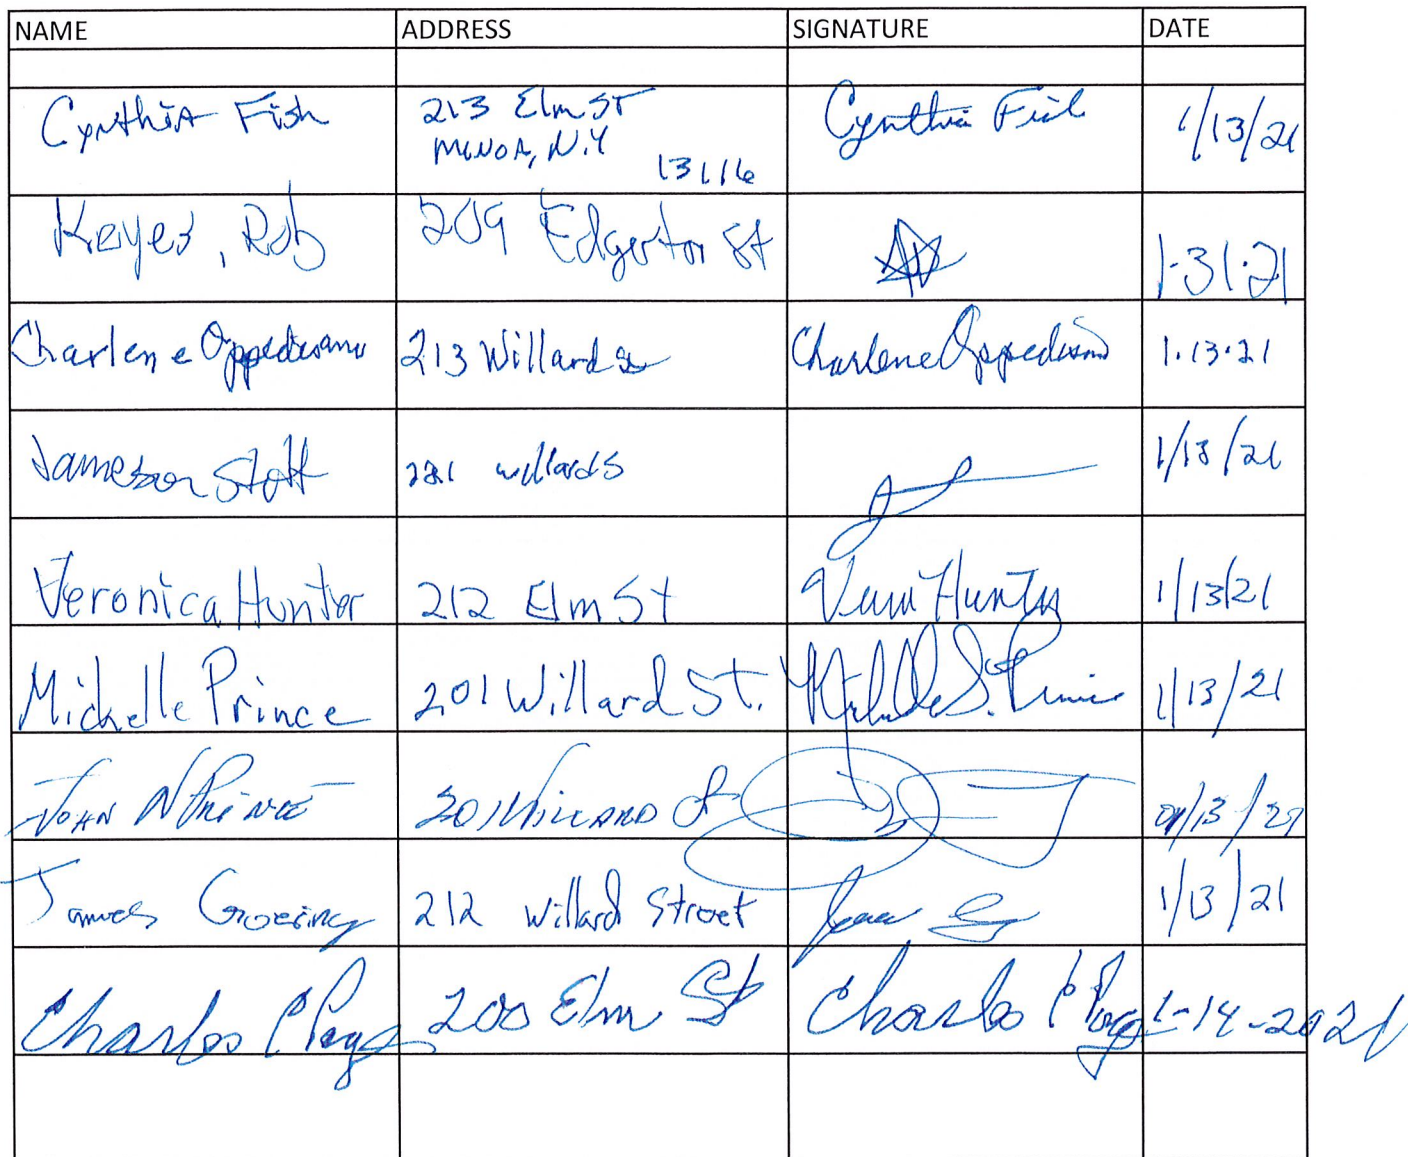 NAME ADDRESS SIGNATURE DATE
Cynthia Fish 213 Elm ST Cynthia Fish 1/13/21
MINOA, N.Y
13116
Keyes, Rob 209 Edgerton St 1-31-21
Charlene Oppedisano 213 Willard St Charlene Oppedisano 1.13.21
Jameson Stott 221 willards 1/13/21
Veronica Hunter 212 Elm St Hunter 1/13/21
Michelle Prince 201 Willard St. Michelle S. Prince 1/13/21
JOHN N PRINCE 201 WILLARD St 01/13/21
James Goeing 212 willard Street 1/13/21
Charles C 200 Elm St Charles C 1-14-2021